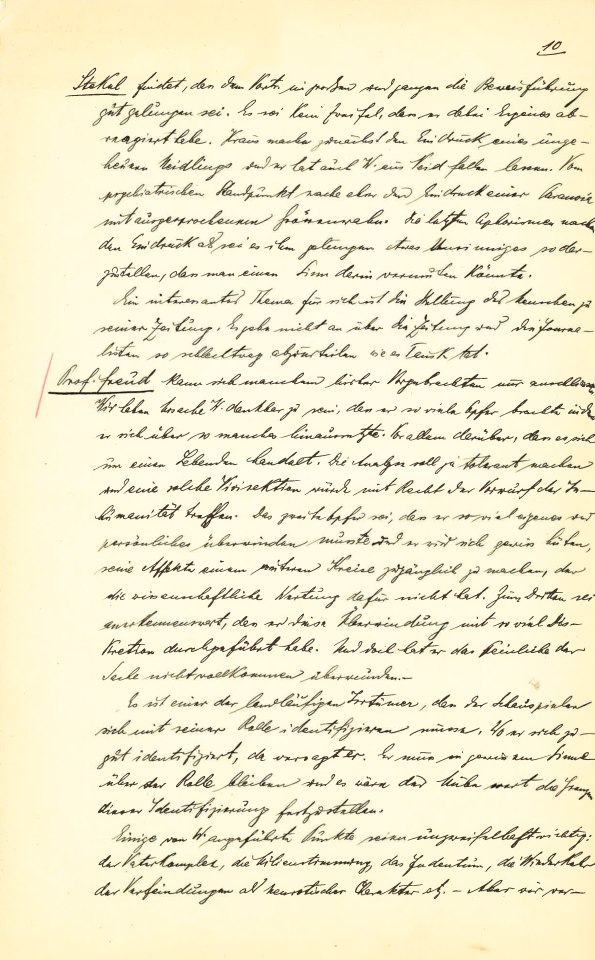 10
Stekel findet, dass dem Vortr. im grossen und ganzen die Beweisführung
gut gelungen sei. Es sei kein Zweifel, dass er dabei Eigenes ab-
reagiert habe. Kraus mache zunächst den Eindruck eines unge-
heuren Neidlings und er hat auch W. aus Neid fallen lassen. Vom
psychiatrischen Standpunkt mache aber den Eindruck einer Paranoia
mit ausgesprochenem Grössenwahn. Die letzten Aphorismen machen
den Eindruck als sei es ihm gelungen etwas Unsinniges so dar-
zustellen, dass man einen Sinn darin vermuten könnte.
Ein interessantes Thema für sich ist die Stellung des Menschen zu
seiner Zeitung. Es gehe nicht an über die Zeitung und die Journa-
listen so schlechtweg abzuurteilen wie es Tausk tat.
Prof. Freud kann sich manchem bisher Vorgebrachten nur anschliessen.
Wir haben Ursache W. dankbar zu sein, dass er so viele Opfer brachte indem
er sich über so manches hinaussetzte. Vor allem darüber, dass es sich
um einen Lebenden handelt. Die Analyse soll ja tolerant machen
und eine solche Vivisektion würde mit Recht der Vorwurf der In-
humanität treffen. Das zweite Opfer sei, dass er so viel eigenes und
persönliches überwinden musste und er wird sich gewiss hüten,
seine Affekte einem weiteren Kreise zugänglich zu machen, der
die wissenschaftliche Wertung dafür nicht hat. Zum Dritten sei
anerkennenswert, dass er diese Überwindung mit so viel Dis-
kretion durchgeführt habe. Und doch hat er das Peinliche der
Sache nicht vollkommen überwunden.-
Es ist einer der landläufigen Irrtümer, dass der Schauspieler
sich mit seiner Rolle identifizieren müsse. Wo er sich zu
gut identifiziert, da versagt er. Er muss in gewissem Sinne
über der Rolle bleiben und es wäre der Mühe wert die Grenzen
dieser Identifizierung festzustellen.
Einige von W. angeführte Punkte seien unzweifelhaft richtig:
der Vaterkomplex, die Milieustimmung, das Judentum, die Wiederkehr
der Verfeindungen als neurotischer Charakter etz. - Aber wir ver-